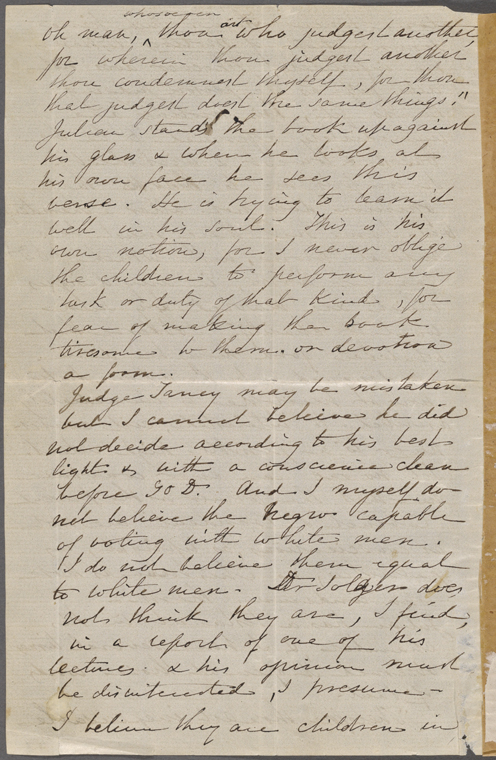 whosoever
oh man, thou art who judgest another,
for wherein thou judgest another
thou condemnest thyself, for thou
that judgest doest the same things."
Julian stands the book up against
his glass & when he looks at
his own face he sees this
verse. He is trying to learn it
well in his soul. This is his
own notion, for I never oblige
the children to perform any
task or duty of that kind, for
fear of making the book
tiresome to them or devotion
a form.
Judge Taney may be mistaken
but I cannot believe he did
not decide according to his best
light & with a conscience clean
before GOD. And I myself do
not believe the Negro capable
of voting with white men.
I do not believe them equal
to white men. Dr Solger does
not think they are, I find,
in a report of one of his
lectures & his opinion must
be disinterested, I presume—
I believe they are children in